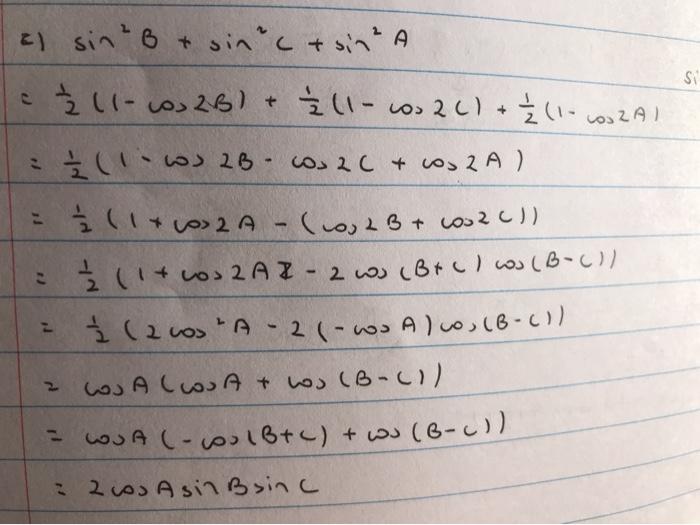 c) sin²B + sin²C + sin²A
si
= ½(1 - cos2B) + ½(1 - cos 2C) + ½(1 - cos2A)
= ½(1 - cos 2B - cos 2C + cos 2A)
= ½(1 + cos2A - (cos2B + cos2C))
= ½(1 + cos2A - 2 cos(B+C) cos(B-C))
= ½(2cos²A - 2(-cosA)cos(B-C))
= cosA(cosA + cos(B-C))
= cosA(-cos(B+C) + cos(B-C))
= 2cosAsinBsinC